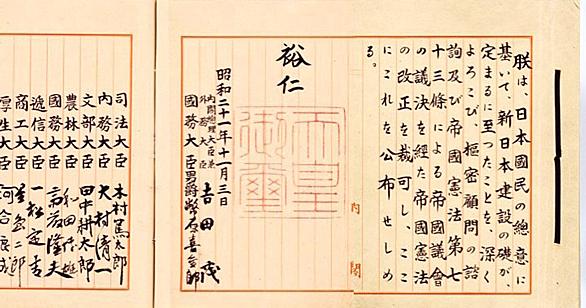 朕は、日本國民の總意に
基いて、新日本建設の礎が、
定まるに至つたことを、深く
よろこび、樞密顧問の諮
詢及び帝國憲法第七
十三條による帝國議會
の議決を経た帝國憲法
の改正を裁可し、ここ
にこれを公布せしめ
る。
裕仁
天皇御璽
昭和二十一年十一月三日
内閣總理大臣兼
外務大臣 吉田茂
國務大臣 男爵幣原喜重郎
司法大臣 木村篤太郎
内務大臣 大村清一
文部大臣 田中耕太郎
農林大臣 和田博雄
遞信大臣 一松定吉
商工大臣 星島二郎
厚生大臣 河合良成
内閣